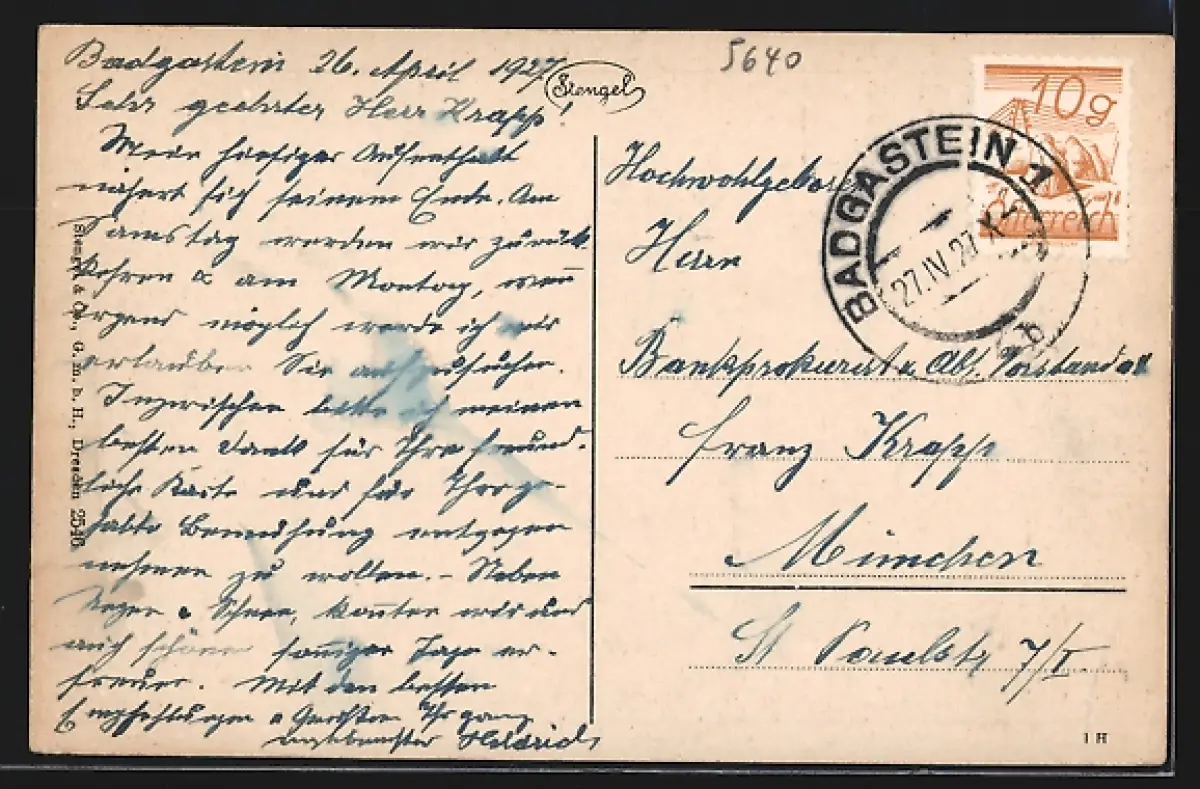 Badgastein 26. April 1927
Sehr geehrter Herr Krapp!
Mein hiesiger Aufenthalt
nähert sich seinem Ende. Am
Samstag werden wir zurück
kehren & am Montag, wenn
irgend möglich werde ich mir
erlauben Sie aufzusuchen.
Inzwischen bitte ich meinen
besten Dank für Ihre freund-
liche Karte und für Ihre ge-
habte Bemühung entgegen
nehmen zu wollen. - Neben
Regen & Schnee, konnten wir uns
auch schöner sonniger Tage er-
freuen. Mit den besten
Empfehlungen & Grüssen Ihr ganz
ergebenster
Stengel
5640
Stengel & Co., G. m. b. H., Dresden 2546
10g
Österreich
BADGASTEIN 1
27.IV.27
b
Hochwohlgeboren
Herrn
Bankprokurist u. Abt. Vorstand
Franz Krapp
München
St Paulstr 7/I
1 H